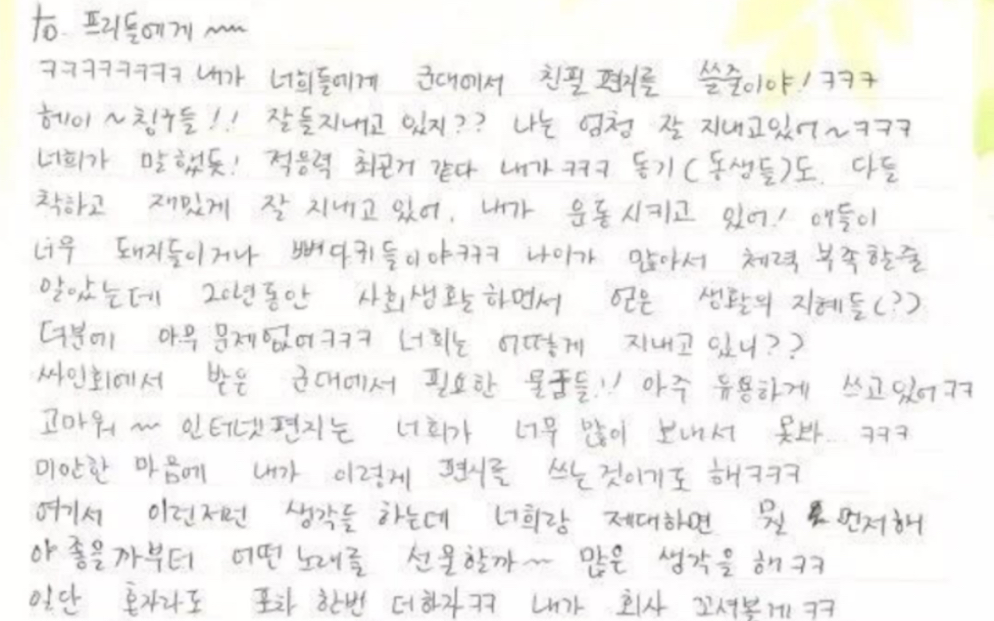 to. 프리들에게 ~~
ㅋㅋㅋㅋㅋㅋㅋㅋ 내가 너희들에게 군대에서 친필 편지를 쓸줄이야! ㅋㅋㅋ
헤이 ~ 칭구들!! 잘들지내고 있지?? 나는 엄청 잘 지내고있어~ㅋㅋㅋ
너희가 말했듯! 적응력 최곤거 같다 내가 ㅋㅋㅋ 동기(동생들)도 다들
착하고 재밌게 잘 지내고 있어. 내가 운동 시키고 있어! 애들이
너무 돼지들이거나 뼈다귀들이야ㅋㅋㅋ 나이가 많아서 체력 부족할줄
알았는데 20년동안 사회생활하면서 얻은 생활의 지혜들(?)
덕분에 아무 문제없어ㅋㅋㅋ 너희는 어떻게 지내고 있니??
싸인회에서 받은 군대에서 필요한 물품들!! 아주 유용하게 쓰고있어ㅋㅋ
고마워 ~~ 인터넷편지는 너희가 너무 많이 보내서 못봐... ㅋㅋㅋ
미안한 마음에 내가 이렇게 편지를 쓰는것이기도 해ㅋㅋㅋ
여기서 이런저런 생각들 하는데 너희랑 제대하면 뭘 먼저해
야 좋을까부터 어떤 노래를 선물할까~ 많은 생각을 해ㅋㅋ
일단 혼자라도 포차 한번 더하자ㅋㅋ 내가 회사 꼬셔볼게 ㅋㅋ